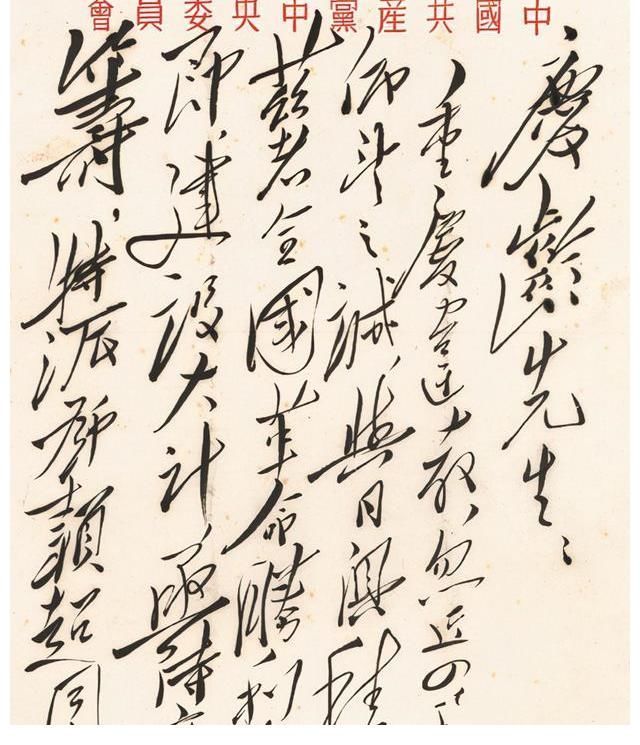 中國共産黨中央委員會
慶齡先生：
重慶違教，忽近四
仰望之誠，與日俱積
兹者全國革命勝利
即，建設大計，亟待
籌，特派鄧穎超同